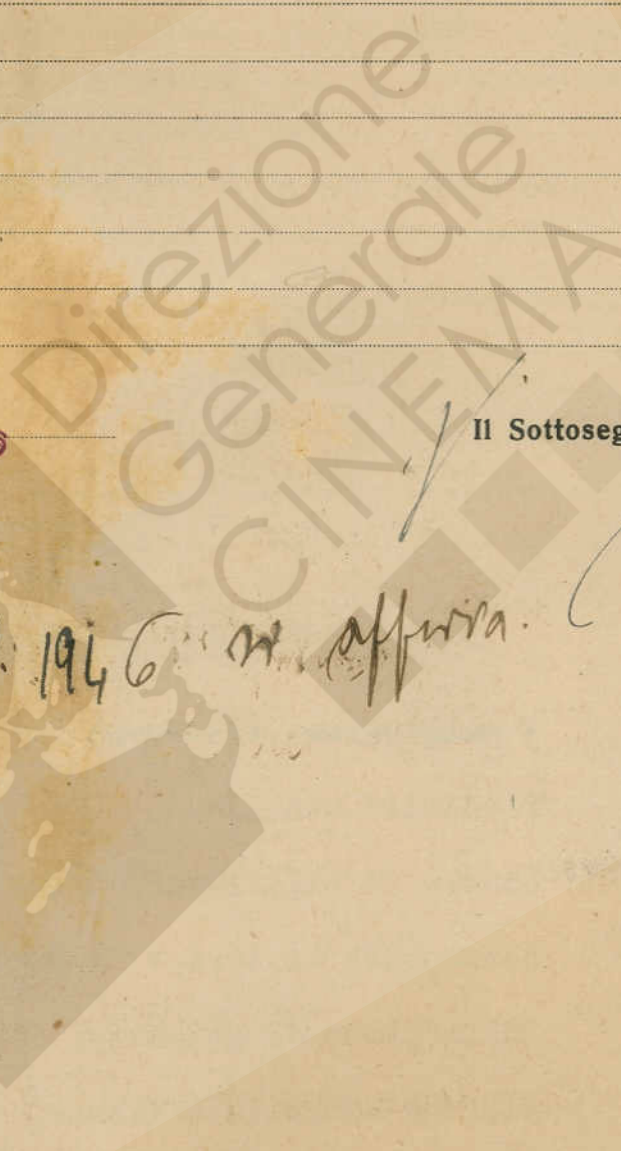 Direzione
Generale
CINEMA
Il Sottoseg
1946